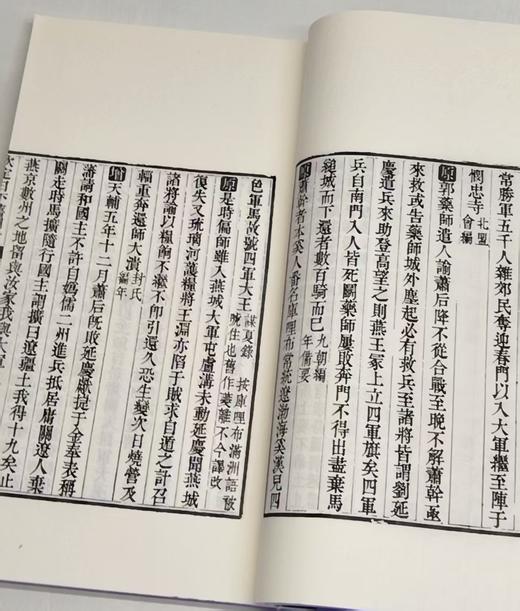 常勝軍五千人雜郊民奪迎春門以入大軍繼至陣于
憫忠寺北盟會編
原郭藥師遣人諭蕭后降不從合戰至晚不解蕭幹亟
來救或告藥師城外塵起必有救兵至諸將皆謂劉延
慶遣兵來助登高望之則燕王冢上立四軍旗矣四軍
兵自南門入人皆死鬬藥師屢敗奔門不得出盡棄馬
縋城而下還者數百騎而已九朝編年備要
原蕭幹者本奚人番名庫哩布常統遼渤海奚漢兒四
色軍馬故號四軍大王謀夏錄 按庫哩布滿洲語被號住也舊作夔離不今譯改
原是時偏師雖入燕城大軍屯盧溝未動延慶聞燕城
復失又琉璃河護糧將王淵亦陷于賊求自遁之計召
諸將諭以糧餉不繼不卽引還久恐生變次日燒營及
輜重奔還師大潰封氏編年
增天輔五年十二月蕭后旣敗延慶繼提于金奉表稱
藩請和國主不許自媯儒二州進兵抵居庸關遼人棄
關走時馬擴隨行國主謂擴曰遼疆土我得十九矣止
燕京數州之地留與汝家我與大軍